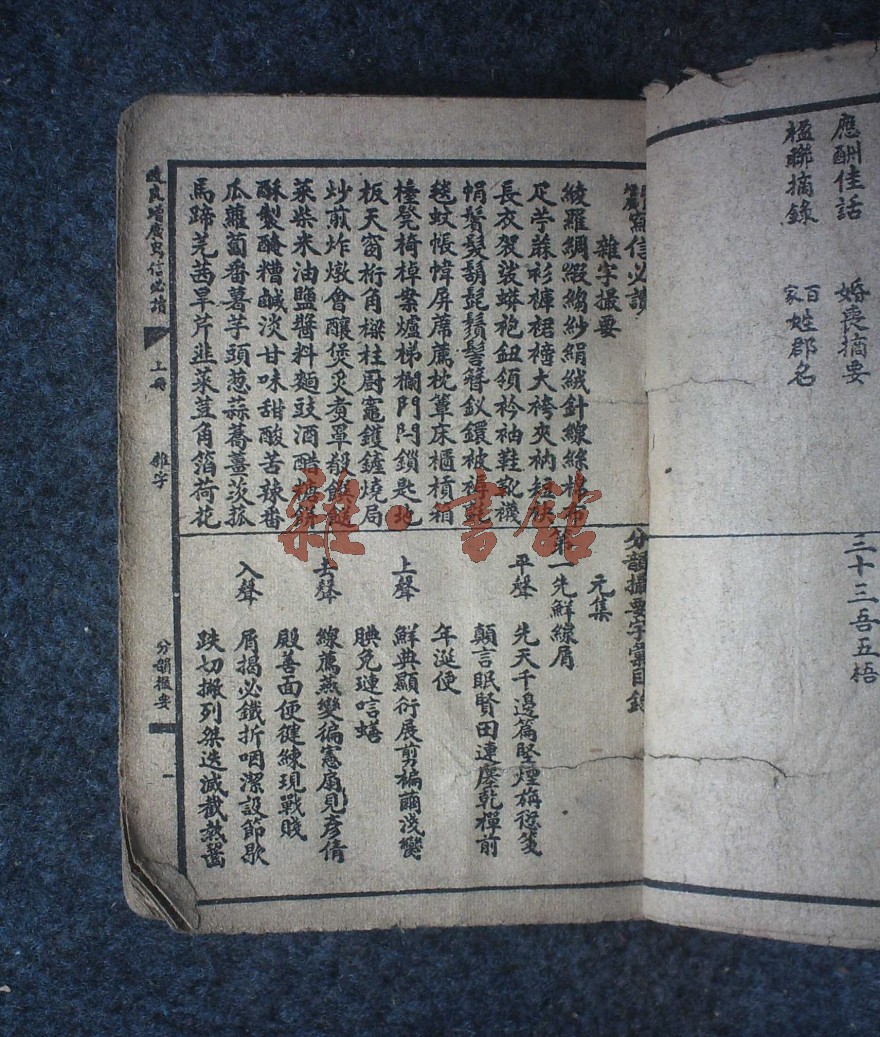 應酬佳話 婚喪摘要
楹聯摘錄 百家姓郡名
三十三吾五梧
寫信必讀
雜字撮要
綾羅綢緞縐紗絹絨針線絲棉布
疋苧蔴衫褲裙大袴夾衲短
長衣袈裟蟒袍鈕領衿袖鞋靴襪
帽鬢髮鬍髭鬚髻簪釵鐶被褥氈
毯蚊帳幃屏蓆薦枕簟床櫃槓箱
檯凳椅棹案爐梯欄門閂鎖匙地
板天窗桁角樑柱廚竈鑊鏟燒局
炒煎炸燉會釀煲炙煑罩殽饌
菜柴米油鹽醬料麵豉酒醋糖餅
酥製醃糟鹹淡甘味甜酸苦辣番
瓜蘿蔔番薯芋頭葱蒜蕎薑茨菰
馬蹄芫茜旱芹韭菜荳角箔荷花
分韻撮要字彙目錄
元集
第一先鮮線屑
平聲 先天千邊篇堅煙旃愆箋
顛言眠賢田連廛乾禪前
年涎便
上聲 鮮典顯衍展剪褊淺
腆免璉唁蟮
去聲 線薦燕變徧憲扇見彥倩
殿善面便健練現戰賤
入聲 屑揭必鐵折咽潔設節歇
跌切撇列桀迭滅截熱齧
增廣寫信必讀 上冊 雜字 分韻撮要 一
雜書館